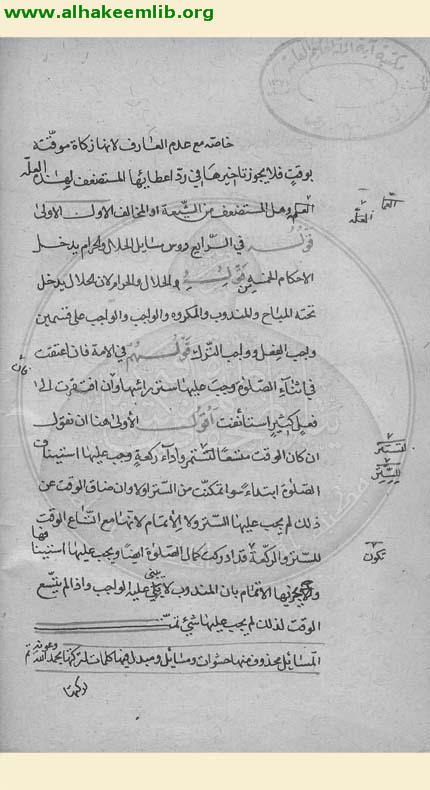 www.alhakeemlib.org
خاصّه مع عدم العارف لانها زكاة موقّتة
بوقتٍ فلا يجوز تاخيرها في ردّ اعطايها المستضعف لهذه العلّه
وهل المستضعف من الشّيعة او المخالف الاولى الاولى
قوله في الرّابع دوس مسايل الحلال والحرام يدخل
الاحكام الخمسة قوله والحلال والحرام لان الحلال يدخل
تحته المباح والمندوب والمكروه والواجب والواجب على قسمين
واجب الفعل وواجب التّرك قولهم في الامة فان اعتقت
في اثناء الصّلوة وجب عليها ستر رائسها وان افتقرت الى
فعل كثيرٍ استأنفت اقول الأولى هنا ان نقول
ان كان الوقت متسعًا للتستر وأداء ركعةٍ وجب عليها استيناف
الصّلوة ابتداءً سواء تمكنت من السّتر اولا وان ضاق الوقت عن
ذلك لم يجب عليها السّتر ولا الإتمام لانها مع اتّساع الوقت
للستر والرّكعة قد ادركت كمال الصّلوة ايضا ويجب عليها استينافها
ولا يجزيها الاتمام بان المندوب لا يبتنى عليه الواجب واذا لم يتّسع
الوقت لذلك لم يجب عليها شيئ تمّت
المسائل محذوف منها حشوات ومسايل ومبدل فيها كلمات لركتها بحمد الله وعونه تم
العلّه
للتستر
للستر
تكون